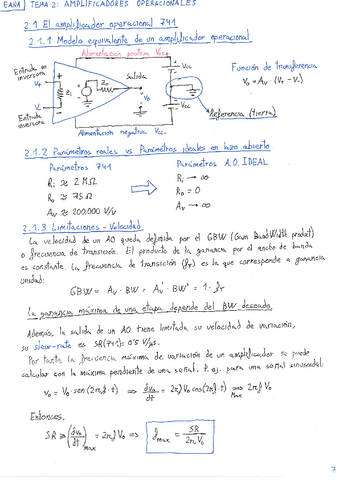 EANA | TEMA 2: AMPLIFICADORES OPERACIONALES
2.1 El amplificador operacional 741
2.1.1 Modelo equivalente de un amplificador operacional
Alimentación positiva Vcc+
Entrada no
inversora
V+
Zi
Zo
Salida
Vo
Vcc
Vcc
V-
Entrada
inversora
Alimentación negativa Vcc-
Función de transferencia
Vo = Av · (V+ - V-)
Referencia (tierra)
2.1.2 Parámetros reales vs Parámetros ideales en lazo abierto
Parámetros 741
Ri ≈ 2 MΩ
Ro ≈ 75 Ω
Av ≈ 200.000 V/V
Parámetros A.O. IDEAL
Ri → ∞
Ro = 0
Av → ∞
2.1.3 Limitaciones - Velocidad
La velocidad de un AO queda definida por el GBW (Gain BandWidth product)
o frecuencia de transición. El producto de la ganancia por el ancho de banda
es constante. La frecuencia de transición (fT) es la que corresponde a ganancia
unidad:
GBW = Av · BW = Av' · BW' = 1 · fT
La ganancia máxima de una etapa depende del BW deseado.
Además, la salida de un AO tiene limitada su velocidad de variación,
su slew-rate es SR(741) = 0'5 V/μs.
Por tanto la frecuencia máxima de variación de un amplificador se puede
calcular con la máxima pendiente de una señal. P. ej. para una señal sinusoidal:
vo = Vo · sen(2πf·t) ⇒ dvo/dt = 2πf Vo cos(2πf·t) ⇒ Max 2πf Vo
Entonces,
SR ≥ (dvo/dt)max = 2πf Vo ⇒ fmax = SR / 2π Vo
7